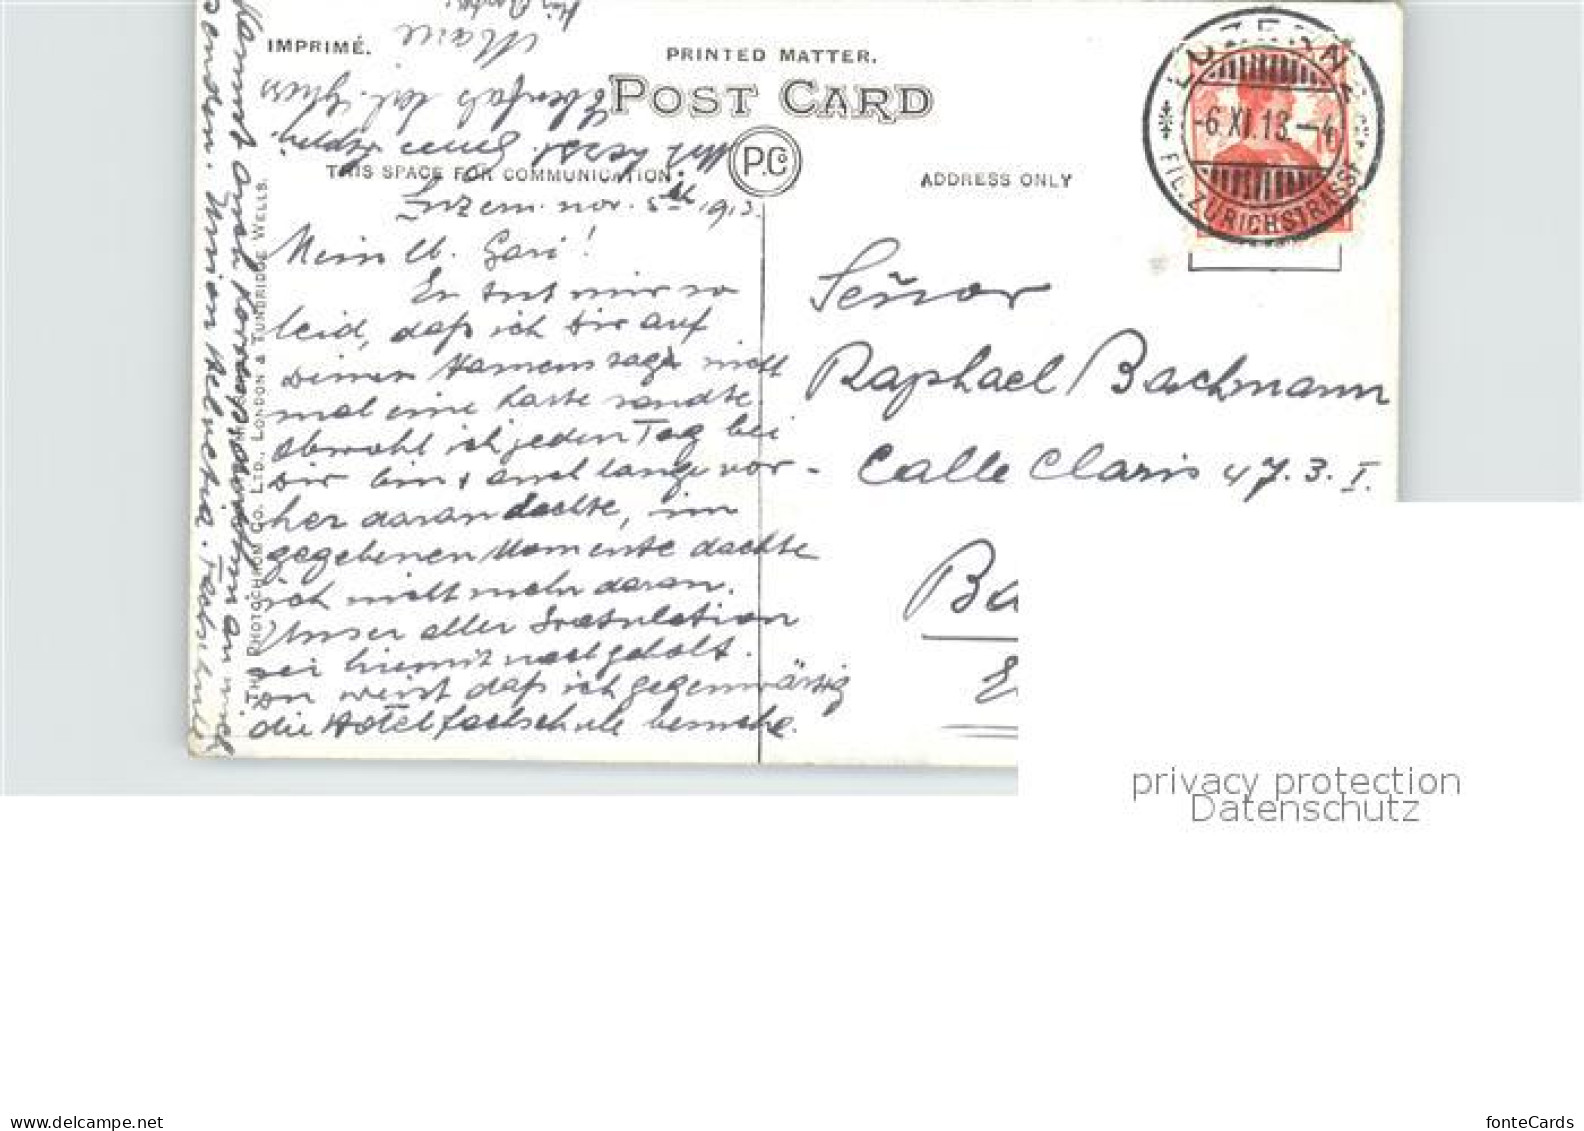 IMPRIMÉ.
PRINTED MATTER.
POST CARD
P.Co
THIS SPACE FOR COMMUNICATION.
ADDRESS ONLY
THE PHOTOCHROM CO. LTD., LONDON & TUNBRIDGE WELLS.
LUZERN 2
-6.XI.13.-4
FIL. ZÜRICHSTRASSE
10
Luzern. nov. 5th 1913.
Mein lb. Gari!
Es tut mir so
leid, daß ich dir auf
deinen Namenstage nicht
mal eine Karte sandte.
obwohl ich jeden Tag bei
dir bin & auch lange vor-
her daran dachte, im
gegebenen Momente dachte
ich nicht mehr daran.
Unser aller Gratulation
sei hiemit nachgeholt.
Du weist daß ich gegenwärtig
die Hotelfachschule besuche.
Kannst auch Korrespondenz an mich
senden. Union Helvetia.
Ebenfalls Gruss
Marie
Señor
Raphael Bachmann
Calle Claris 47. 3. I.
Ba
E
privacy protection
Datenschutz
www.delcampe.net
fonteCards